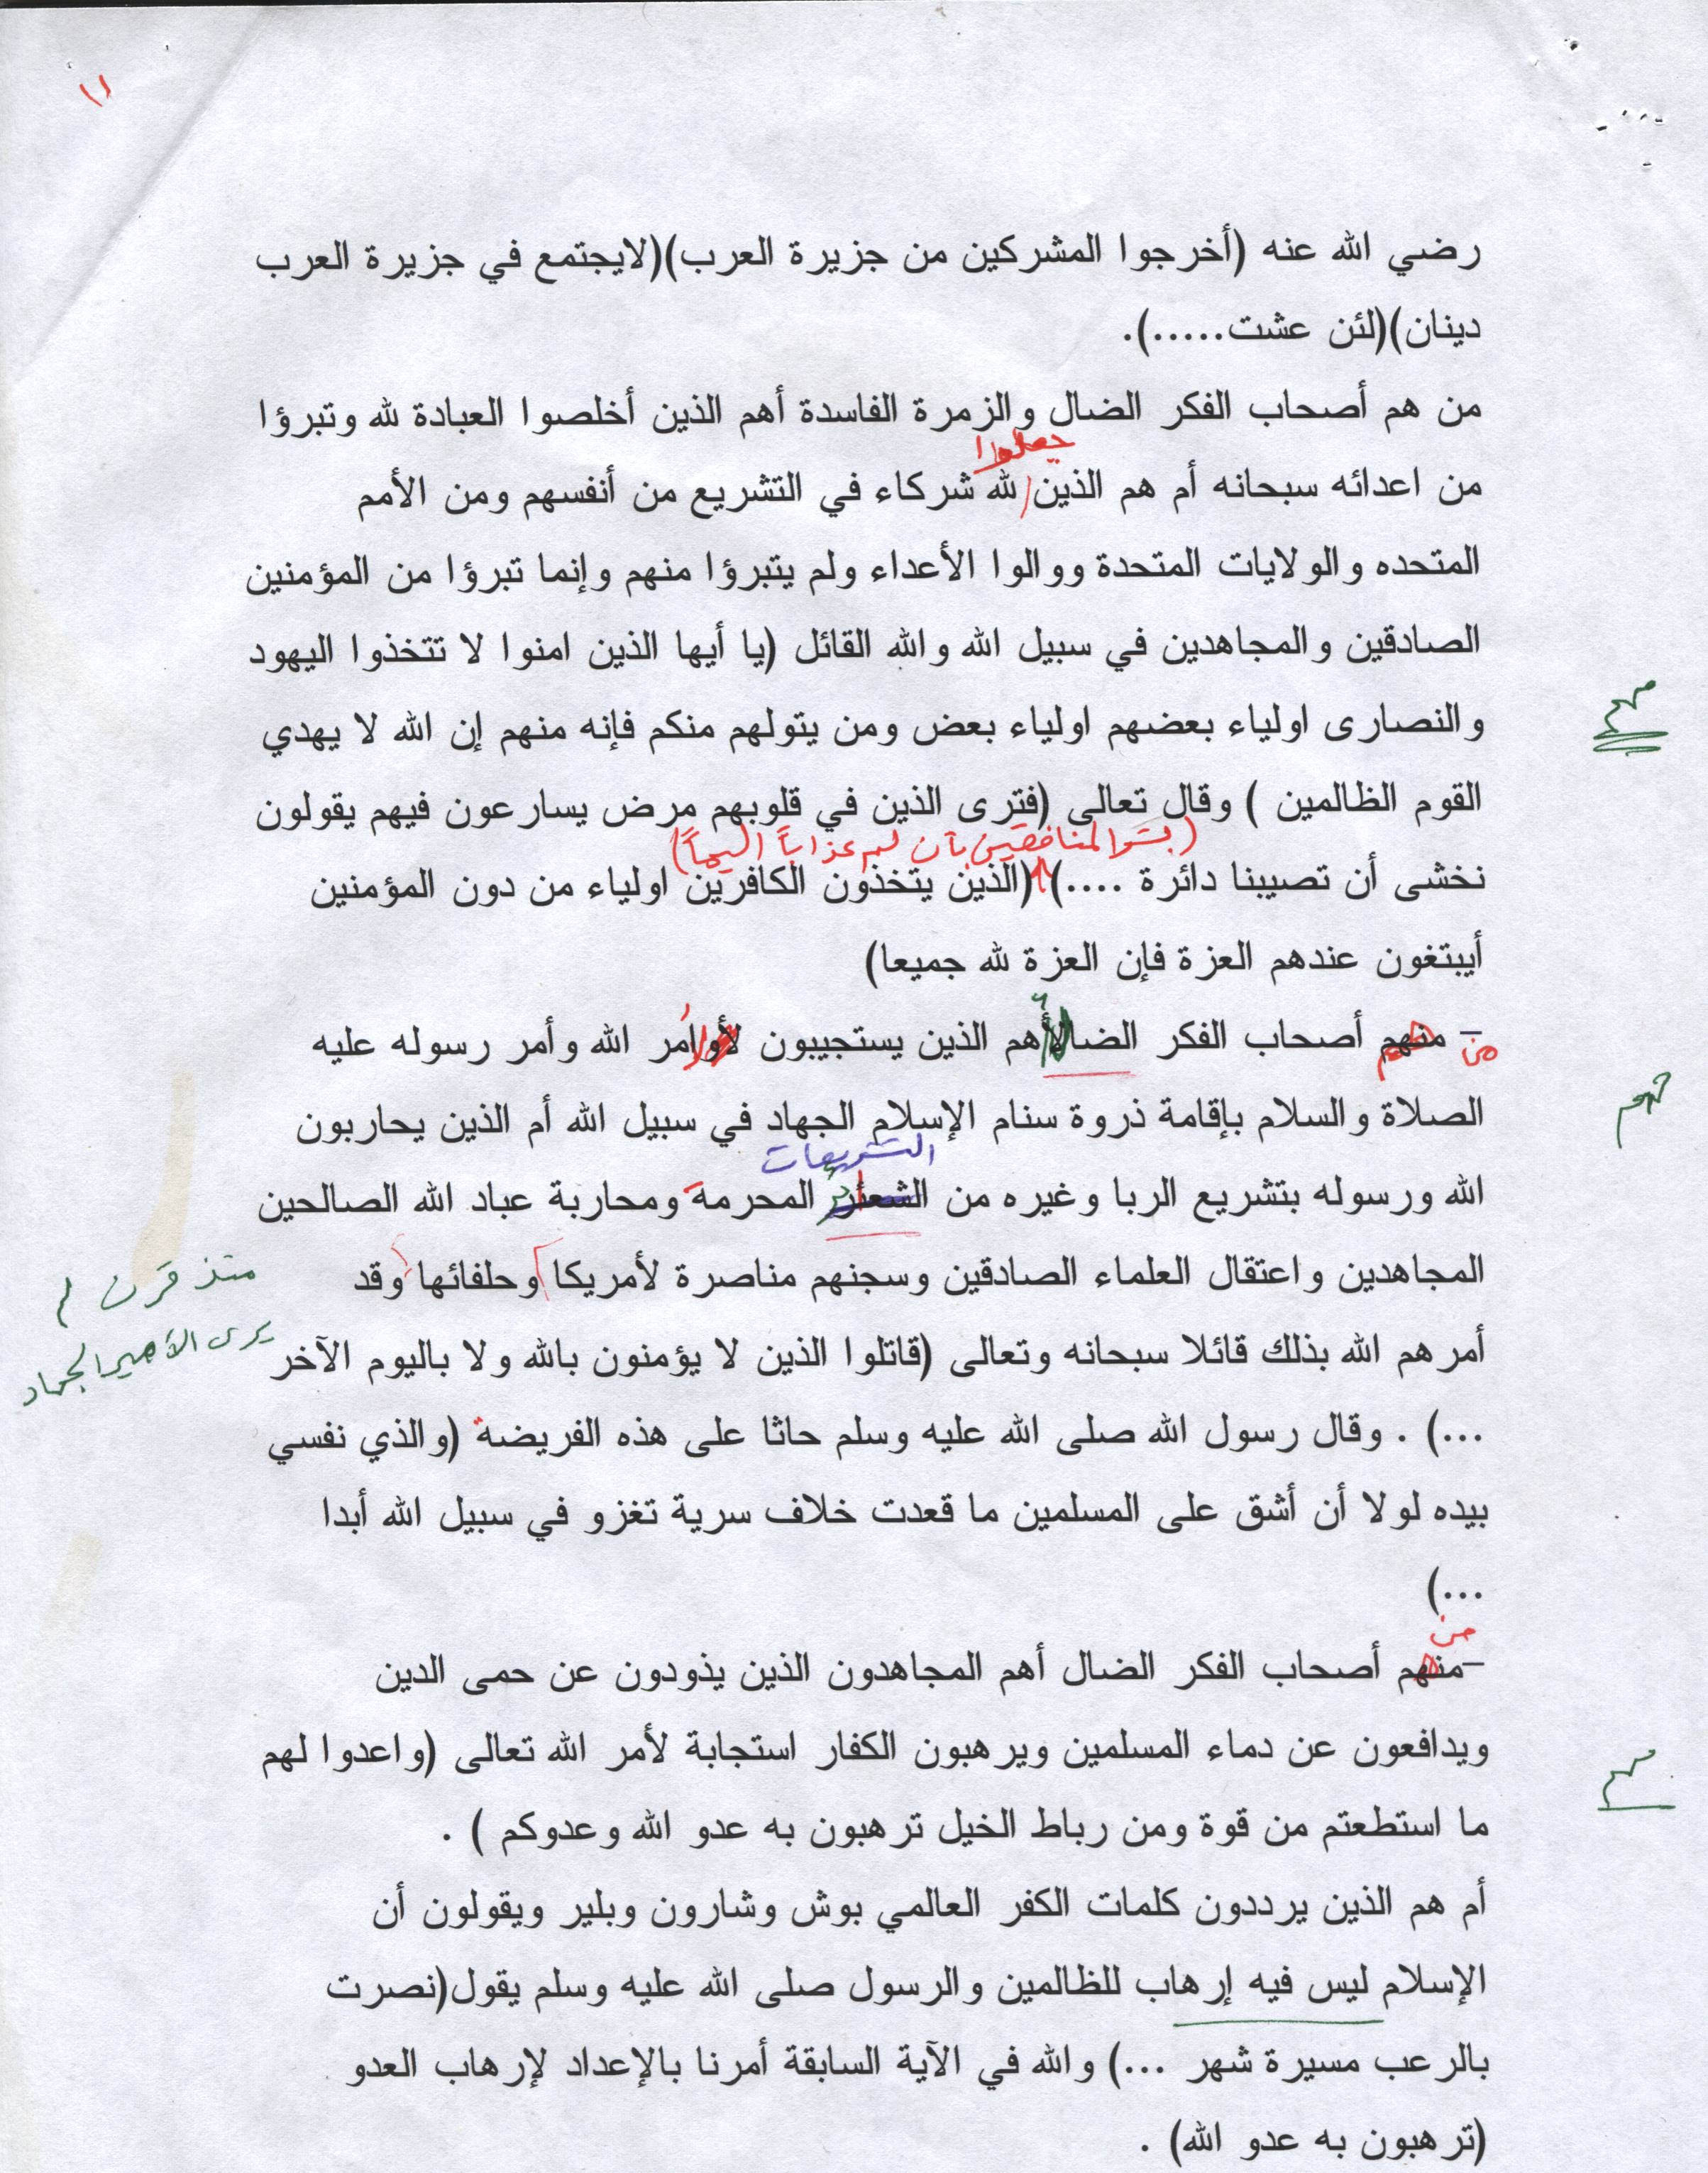 ١١
رضي الله عنه (أخرجوا المشركين من جزيرة العرب)(لايجتمع في جزيرة العرب
دينان)(لئن عشت.....).
من هم أصحاب الفكر الضال والزمرة الفاسدة أهم الذين أخلصوا العبادة لله وتبرؤا
جعلوا
من اعدائه سبحانه أم هم الذين لله شركاء في التشريع من أنفسهم ومن الأمم
المتحده والولايات المتحدة ووالوا الأعداء ولم يتبرؤا منهم وإنما تبرؤا من المؤمنين
الصادقين والمجاهدين في سبيل الله والله القائل (يا أيها الذين امنوا لا تتخذوا اليهود
والنصارى اولياء بعضهم اولياء بعض ومن يتولهم منكم فإنه منهم إن الله لا يهدي
القوم الظالمين ) وقال تعالى (فترى الذين في قلوبهم مرض يسارعون فيهم يقولون
(بشر المنافقين بأن لهم عذاباً اليماً)
نخشى أن تصيبنا دائرة ....)(الذين يتخذون الكافرين اولياء من دون المؤمنين
أيبتغون عندهم العزة فإن العزة لله جميعا)
- من هم أصحاب الفكر الضال أهم الذين يستجيبون لأمر الله وأمر رسوله عليه
الصلاة والسلام بإقامة ذروة سنام الإسلام الجهاد في سبيل الله أم الذين يحاربون
التشريعات
الله ورسوله بتشريع الربا وغيره من المحرمة ومحاربة عباد الله الصالحين
المجاهدين واعتقال العلماء الصادقين وسجنهم مناصرة لأمريكا وحلفائها وقد
منذ قرن لم
يرى الأمير الجهاد
أمرهم الله بذلك قائلا سبحانه وتعالى (قاتلوا الذين لا يؤمنون بالله ولا باليوم الآخر
...) . وقال رسول الله صلى الله عليه وسلم حاثا على هذه الفريضة (والذي نفسي
بيده لولا أن أشق على المسلمين ما قعدت خلاف سرية تغزو في سبيل الله أبدا
...)
-من هم أصحاب الفكر الضال أهم المجاهدون الذين يذودون عن حمى الدين
ويدافعون عن دماء المسلمين ويرهبون الكفار استجابة لأمر الله تعالى (واعدوا لهم
ما استطعتم من قوة ومن رباط الخيل ترهبون به عدو الله وعدوكم ) .
أم هم الذين يرددون كلمات الكفر العالمي بوش وشارون وبلير ويقولون أن
الإسلام ليس فيه إرهاب للظالمين والرسول صلى الله عليه وسلم يقول(نصرت
بالرعب مسيرة شهر ...) والله في الآية السابقة أمرنا بالإعداد لإرهاب العدو
(ترهبون به عدو الله) .